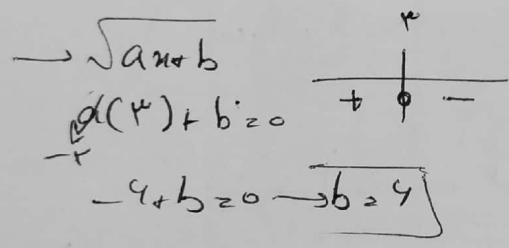 → √ax+b
۳
a(۳)+b=0
+ −
−۲
−۶+b=0 → b=۶